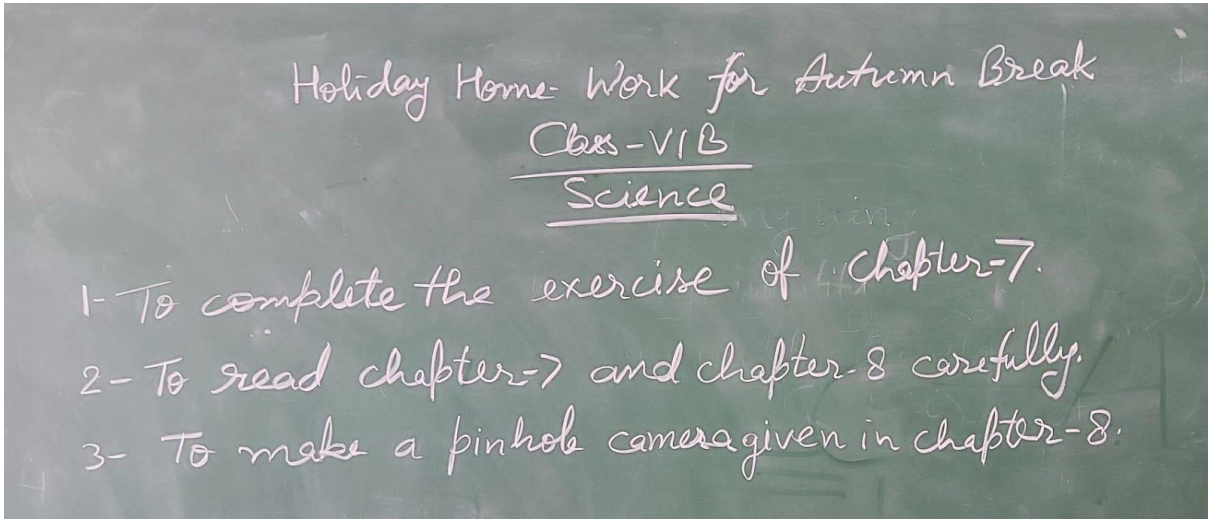 Holiday Home-Work for Autumn Break
Class-VIB
Science
1- To complete the exercise of chapter-7.
2- To read chapter-7 and chapter-8 carefully.
3- To make a pinhole camera given in chapter-8.